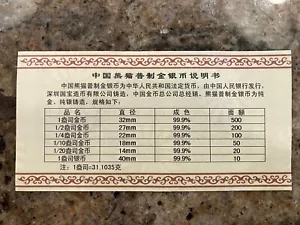 中国熊猫普制金银币说明书
中国熊猫普制金银币为中华人民共和国法定货币，由中国人民银行发行，
深圳国宝造币有限公司铸造，中国金币总公司总经销。熊猫普制金银币为纯
金、纯银铸造，规格如下：
名称 直径 成色 面额
1盎司金币 32mm 99.9% 500
1/2盎司金币 27mm 99.9% 200
1/4盎司金币 22mm 99.9% 100
1/10盎司金币 18mm 99.9% 50
1/20盎司金币 14mm 99.9% 20
1盎司银币 40mm 99.9% 10
注：1盎司=31.1035克